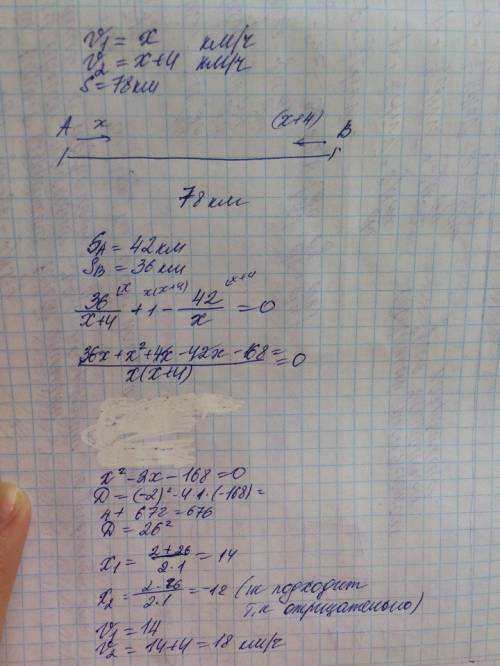 v₁ = x км/ч
v₂ = x+4 км/ч
S = 78км
A x (x+4) B
78 км
S_A = 42км
S_B = 36 км
36/(x+4) (x + 1 x(x+4) - 42/x (x+4 = 0
(36x+x²+4x-42x-168=)/(x(x+4)) =0
x²-2x-168=0
D = (-2)²-4·1·(-168)=
4+672=676
D = 26²
x₁ = (2+26)/(2·1) = 14
x₂ = (2-26)/(2·1) = -12 (не подходит
т.к отрицательное)
v₁ = 14
v₂ = 14+4=18 км/ч